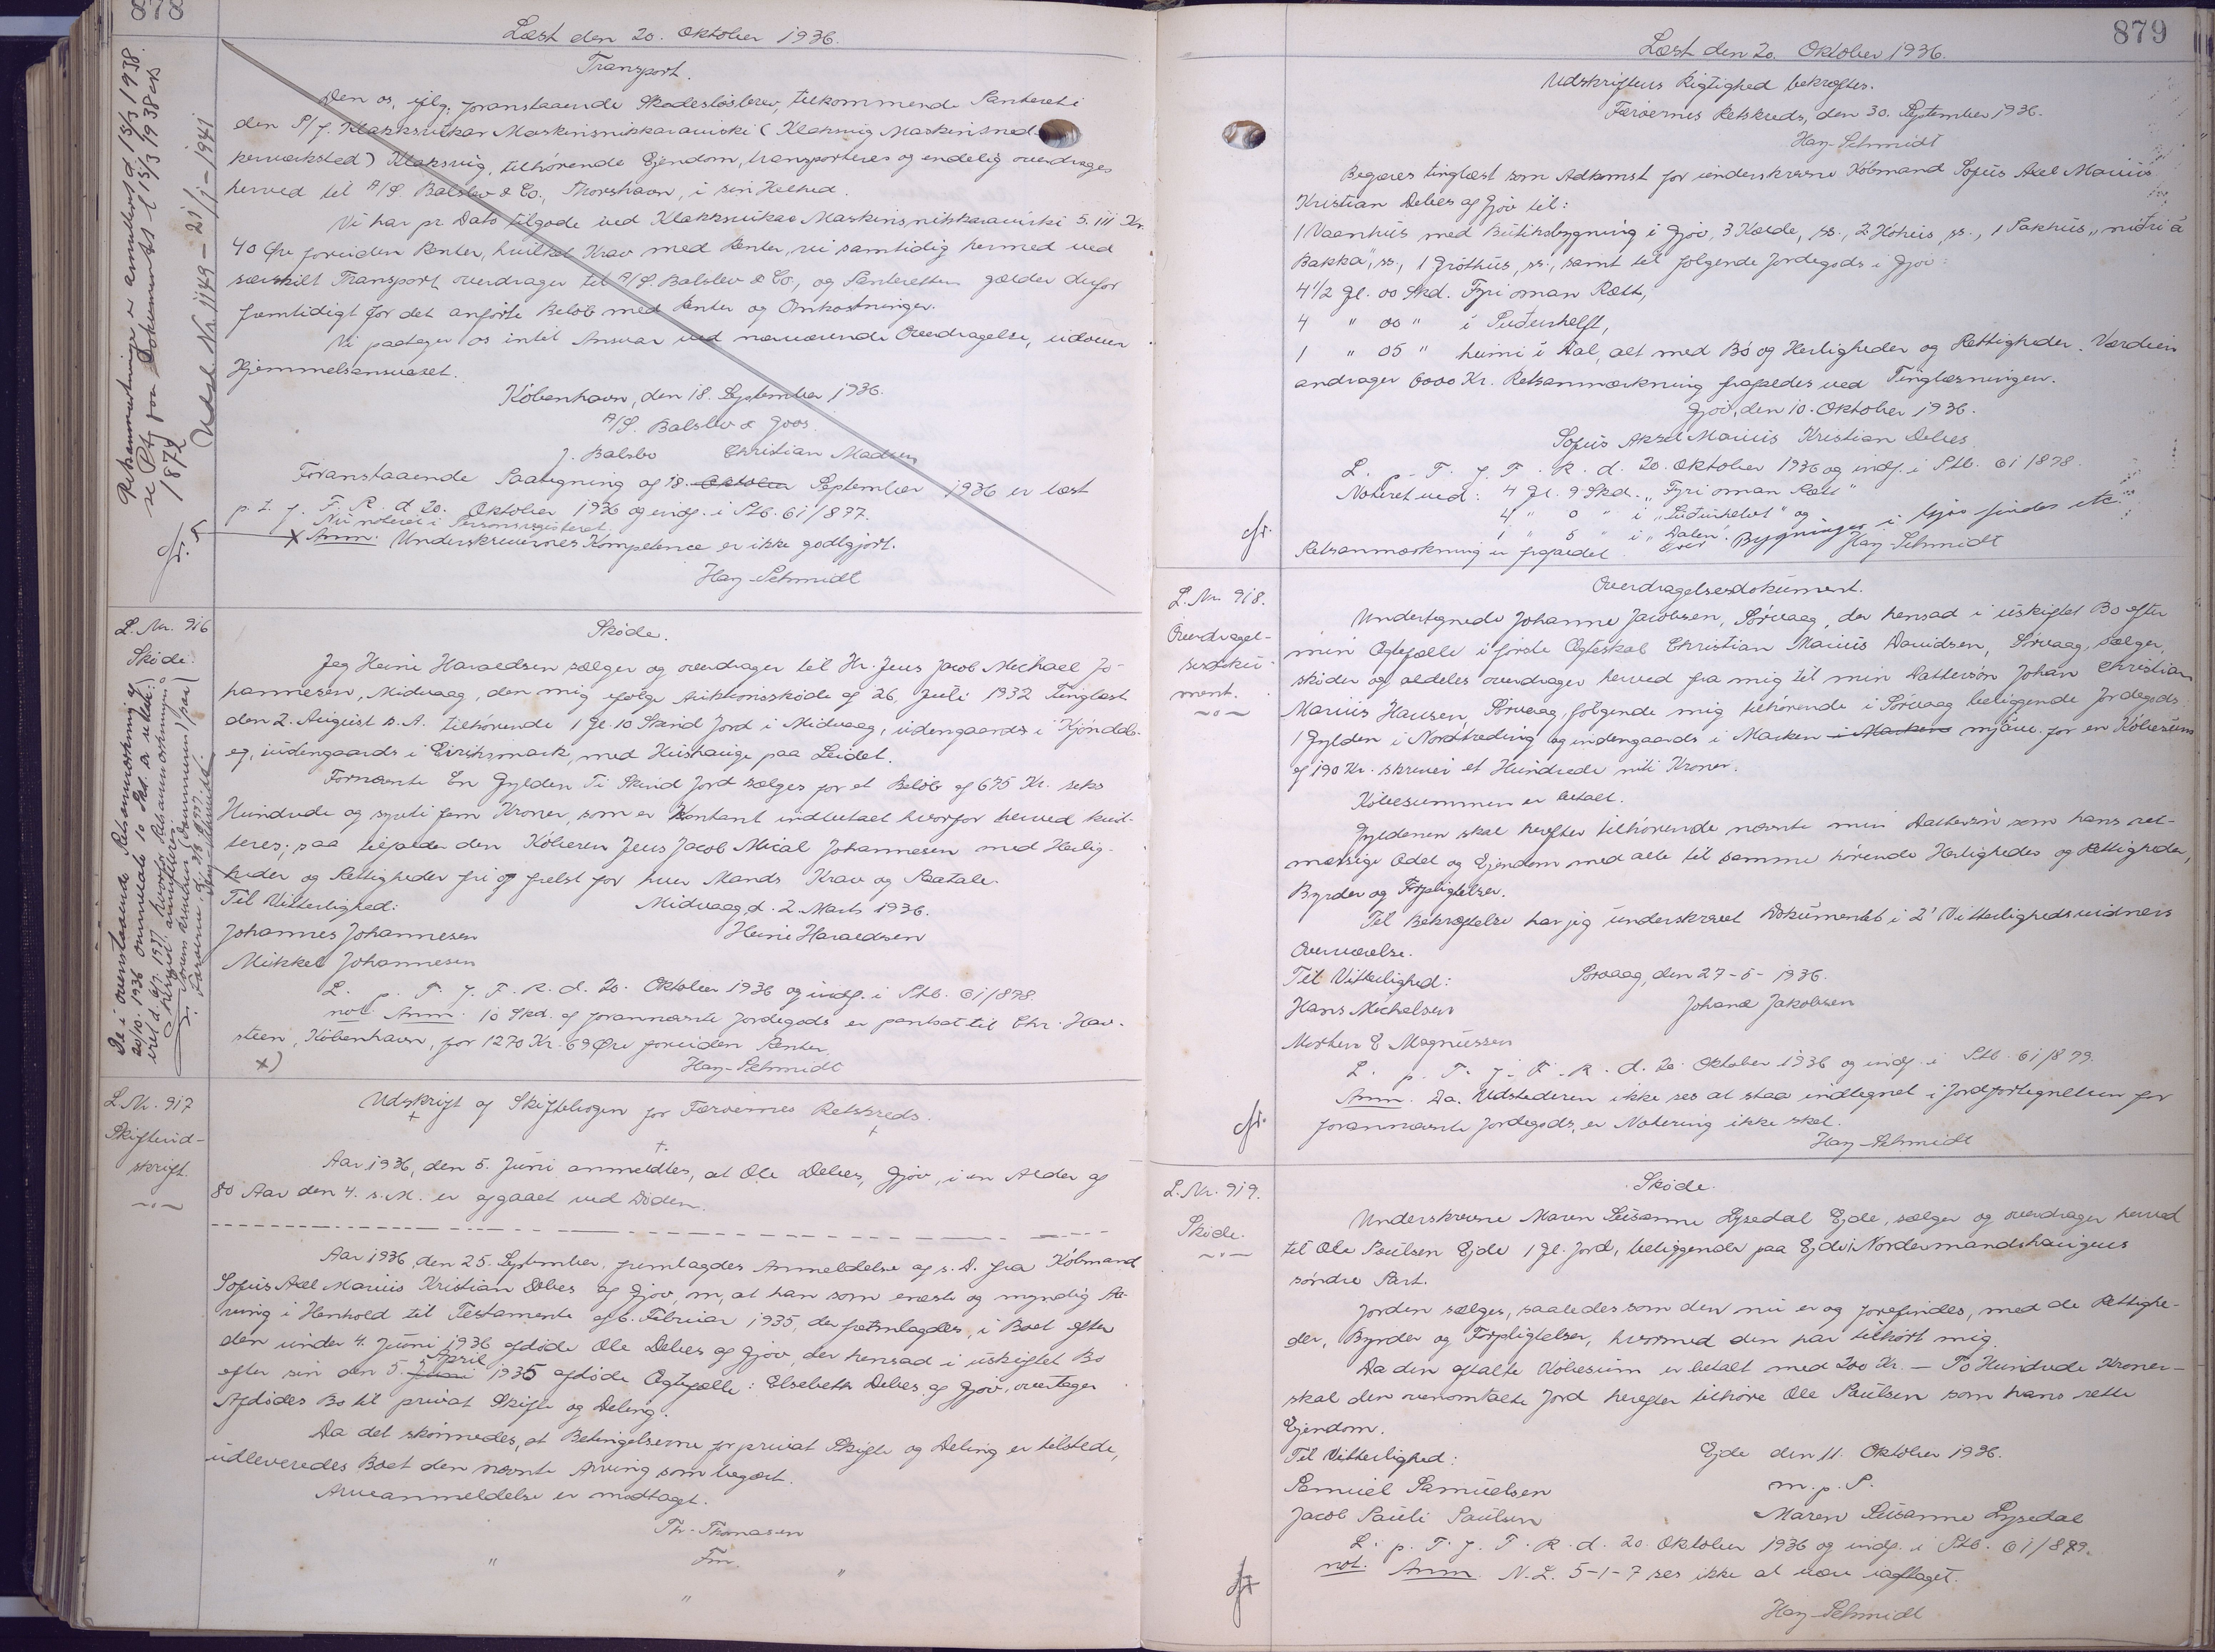 878
Læst den 20. Oktober 1936.
Transport.
Den os, iflg. foranstaaende Skadesløsbrev, tilkommende Panteret i
den P/f. Klakksvikar Maskinsnikkaraviski (Klaksvig Maskinsned-
kerværksted) Klaksvig, tilhörende Ejendom, transporteres og endelig overdrages
herved til A/S. Balslev & Co., Thorshavn, i sin Helhed.
Vi har pr Dato tilgode ved Klakksvikar Maskinsnikkaravirki 5.111 Kr.
40 Øre foruden Renter, hvilket Krav med Renter, vi samtidig hermed ved
særskilt Transport overdrager til A/S. Balslev & Co., og Panteretten gælder derfor
fremtidigt for det anførte Beløb med Renter og Omkostninger.
Vi paatager os intet Ansvar ved nærværende Overdragelse, udover
Hjemmelsansvaret.
København, den 18. September 1936.
A/S. Balslev & Goos.
J. Balslev Christian Madsen
Foranstaaende Paategning af 18. Oktober September 1936 er læst
p. t. f. F. R. d. 20. Oktober 1936 og indf. i Ptb. 61/877.
Nu noteret i Personregisteret.
x Anm: Underskrivernes Kompetence er ikke godtgjort.
Hay-Schmidt
Retsanmærkningen er annulleret d. 15/3 1938.
se Ptg. paa Dokumentet l 15/3 1938
1874
Udsl. Nr. 1149 - 21/1 - 1941
L. Nr. 916
Skøde.
Skøde.
Jeg Heini Haraldsen sælger og overdrager til Hr. Jens Jacob Michael Jo-
hannesen, Midvaag, den mig ifølge Auktionsskøde af 26. Juli 1932 Tinglæst
den 2. August s. A. tilhørende 1 Gl. 10 Skind Jord i Midvaag, udengaards i Kjóndal-
ey, indengaards i Eiriksmark, med Hushauge paa Leidet.
Fornævnte En Gylden Ti Skind Jord sælges for et Beløb af 675 Kr. seks
Hundrede og syvti fem Kroner, som er Kontant indbetalt hvorfor herved kvit-
teres; saa tilfalder den Køberen Jens Jacob Mical Johannesen med Herlig-
heder og Rettigheder fri og frelst for hver Mands Krav og Paatale.
Til Vitterlighed: Midvaag, d. 2. Marts 1936.
Johannes Johannesen Heini Haraldsen
Mikkel Johannesen
L. p. T. f. F. R. d. 20. Oktober 1936 og indf. i Ptb. 61/878.
not. Anm. 10 Skd. af forannævnte Jordegods er pantsat til Chr. Hav-
steen, København, for 1270 Kr. 69 Øre foruden Renter.
x) Hay-Schmidt
De i ovenstaaende Retsanmærkning af
20/10. 1936 ommeldte 10 Skd. er
1937, hvorfor Retsanmærkningen
herved annulleres.
L. Nr. 917
Skifteud-
skrift.
Udskrift af Skiftebogen for Færøernes Retskreds.
Aar 1936, den 5. Juni anmeldtes, at Ole Debes, Gjov, i en Alder af
80 Aar den 4. s. M. er afgaaet ved Døden.
Aar 1936, den 25. September, fremlagdes Anmeldelse af s. D. fra Købmand
Sofus Axel Marius Kristian Debes af Gjov, om, at han som eneste og myndig Ar-
ving i Henhold til Testamente af 6. Februar 1935, der fremlagdes, i Boet efter
den under 4. Juni 1936 afdøde Ole Debes af Gjov, der hensad i uskiftet Bo
efter sin den 5. Juni April 1935 afdøde Ægtefælle: Elsebeth Debes, af Gjov, overtager
Afdødes Bo til privat Skifte og Deling.
Da det skønnedes, at Betingelserne for privat Skifte og Deling er tilstede,
udleveredes Boet den nævnte Arving som begært.
Arveanmeldelse er modtaget.
Th. Thomasen
Fm.
879
Læst den 20. Oktober 1936.
Udskriftens Rigtighed bekræftes.
Færøernes Retskreds, den 30. September 1936.
Hay-Schmidt
Begæres tinglæst som Adkomst for underskrevne Købmand Sofus Axel Marius
Kristian Debes af Gjov til:
1 Vaanhus med Butiksbygning i Gjov, 3 Kælde, ss., 2 Høhus, ss., 1 Pakhus „niðri á
Bakka", ss., 1 Gróthus, ss., samt til følgende Jordegods i Gjov:
4 1/2 Gl. 00 Skd. Fyri oman Rætt,
4 " 00 " i Suðurhelft,
1 " 05 " heimi i Dal, alt med Bø og Herligheder og Rettigheder. Værdien
andrager 6000 Kr. Retsanmærkning frafaldes ved Tinglæsningen.
Gjov, den 10. Oktober 1936.
Sofus Aksel Marius Kristian Debes.
L. p. T. f. F. R. d. 20. Oktober 1936 og indf. i Ptb. 61/878.
Noteret ved: 4 Gl. 9 Skd. „Fyri oman Rætt"
4 " 0 " i „Suðurhelvt" og
1 " 5 " i „Dalen". Over Bygninger i Gjov findes etc.
Retsanmærkning er frafaldet. Hay-Schmidt
L. Nr. 918.
Overdragel-
sesdoku-
ment.
Overdragelsesdokument.
Undertegnede Johanne Jacobsen, Sørvaag, der hensad i uskiftet Bo efter
min Ægtefælle i første Ægteskab Christian Marius Davidsen, Sørvaag, sælger,
skøder og aldeles overdrager herved fra mig til min Dattersøn Johan Christian
Marius Hansen, Sørvaag, følgende mig tilhørende i Sørvaag beliggende Jordegods:
1 Gylden i Nordtreding og indengaards i Marken i Marken mjáu. for en Købesum
af 190 Kr. skriver et Hundrede niti Kroner.
Købesummen er betalt.
Gyldenen skal herefter tilhørende nævnte min Dattersøn som hans ret-
mæssige Odel og Ejendom med alle til samme hørende Herligheder og Rettigheder,
Byrder og Forpligtelser.
Til Bekræftelse har jeg underskrevet Dokumentet i 2' Vitterlighedsvidners
Overværelse.
Til Vitterlighed: Sørvaag, den 27-5-1936.
Hans Michelsen Johanne Jakobsen
Morten E Magnussen
L. p. T. f. F. R. d. 20. Oktober 1936 og indf. i Ptb. 61/879.
Anm. Da Udstederen ikke ses at staa indtegnet i Jordfortegnelsen for
forannævnte Jordegods, er Notering ikke sket.
Hay-Schmidt
L. Nr. 919.
Skøde.
Skøde.
Underskrevne Maren Susanne Lysedal Ejde, sælger og overdrager herved
til Ole Poulsen Ejde 1 Gl. Jord, beliggende paa Ejde i Nordermandshaugens
søndre Part.
Jorden sælges, saaledes som den nu er og forefindes, med de Rettighe-
der, Byrder og Forpligtelser, hvormed den har tilhørt mig.
Da den aftalte Købesum er betalt med 200 Kr. — To Hundrede Kroner —
skal den ovenomtalte Jord herefter tilhøre Ole Poulsen som hans rette
Ejendom.
Til Vitterlighed: Ejde den 11. Oktober 1936.
Samuel Samuelsen m. p. P.
Jacob Pauli Poulsen Maren Susanne Lysedal
L. p. T. f. F. R. d. 20. Oktober 1936 og indf. i Ptb. 61/879.
not. Anm. N. L. 5-1-7 ses ikke at være iagttaget.
Hay-Schmidt